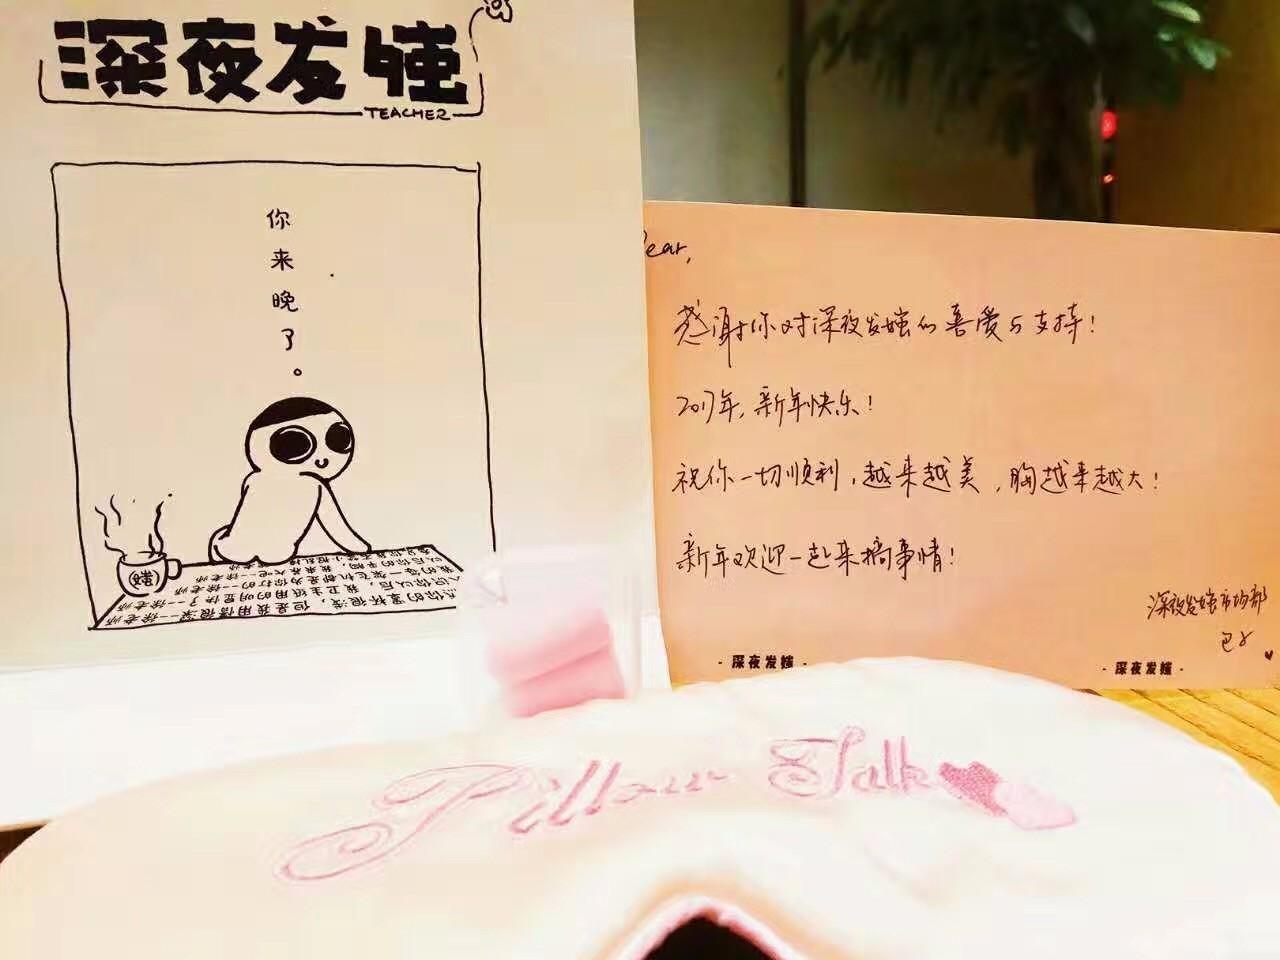 深夜发媸
TEACHER
你来晚了。
Dear,
感谢你对深夜发媸的喜爱与支持！
2017年,新年快乐！
祝你一切顺利,越来越美,胸越来越大！
新年欢迎一起来搞事情！
深夜发媸市场部
-深夜发媸-
-深夜发媸-
媸
Pillow Talk